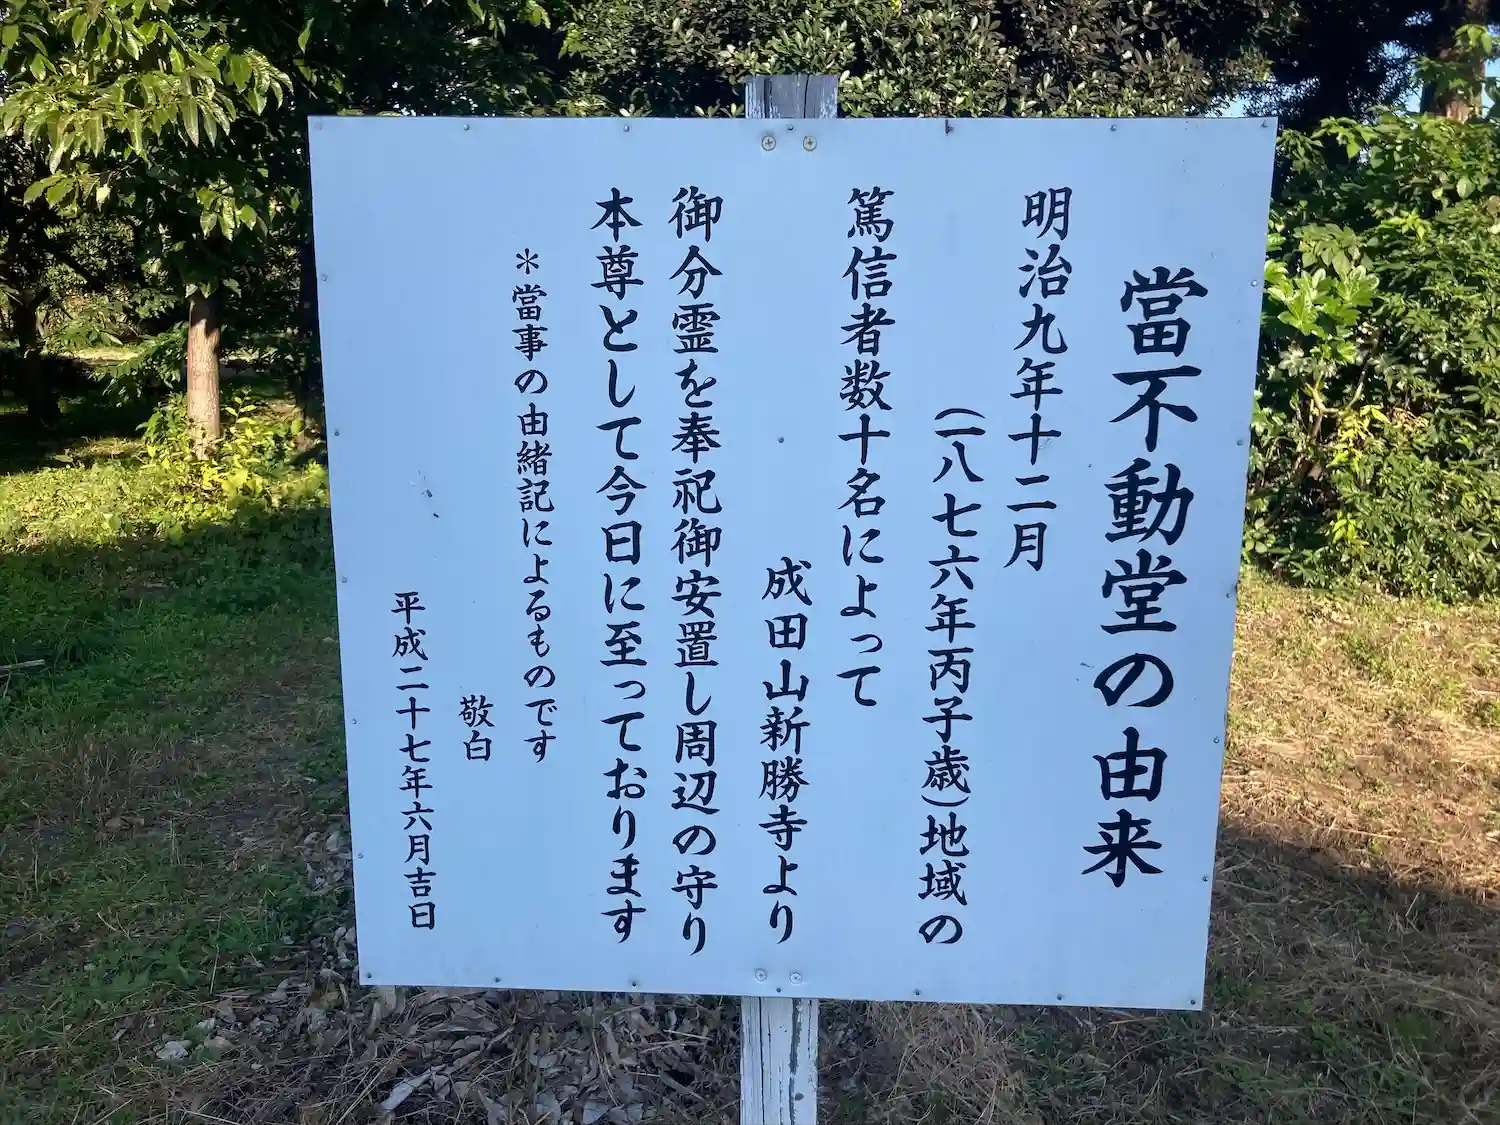 當不動堂の由来
明治九年十二月
(一八七六年丙子歳)地域の
篤信者数十名によって
成田山新勝寺より
御分霊を奉祀御安置し周辺の守り
本尊として今日に至っております
＊當事の由緒記によるものです
敬白
平成二十七年六月吉日